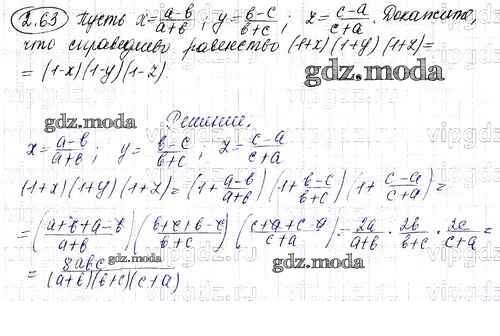 2.63 Пусть x = (a-b)/(a+b); y = (b-c)/(b+c); z = (c-a)/(c+a). Докажите,
что справедливо равенство (1+x)(1+y)(1+z)=
= (1-x)(1-y)(1-z).
gdz.moda
gdz.moda
Решение.
x = (a-b)/(a+b); y = (b-c)/(b+c); z = (c-a)/(c+a)
(1+x)(1+y)(1+z) = (1 + (a-b)/(a+b)) (1 + (b-c)/(b+c)) (1 + (c-a)/(c+a)) =
= ((a+b+a-b)/(a+b)) ((b+c+b-c)/(b+c)) ((c+a+c-a)/(c+a)) = 2a/(a+b) · 2b/(b+c) · 2c/(c+a) =
= 8abc/((a+b)(b+c)(c+a))
gdz.moda
gdz.moda